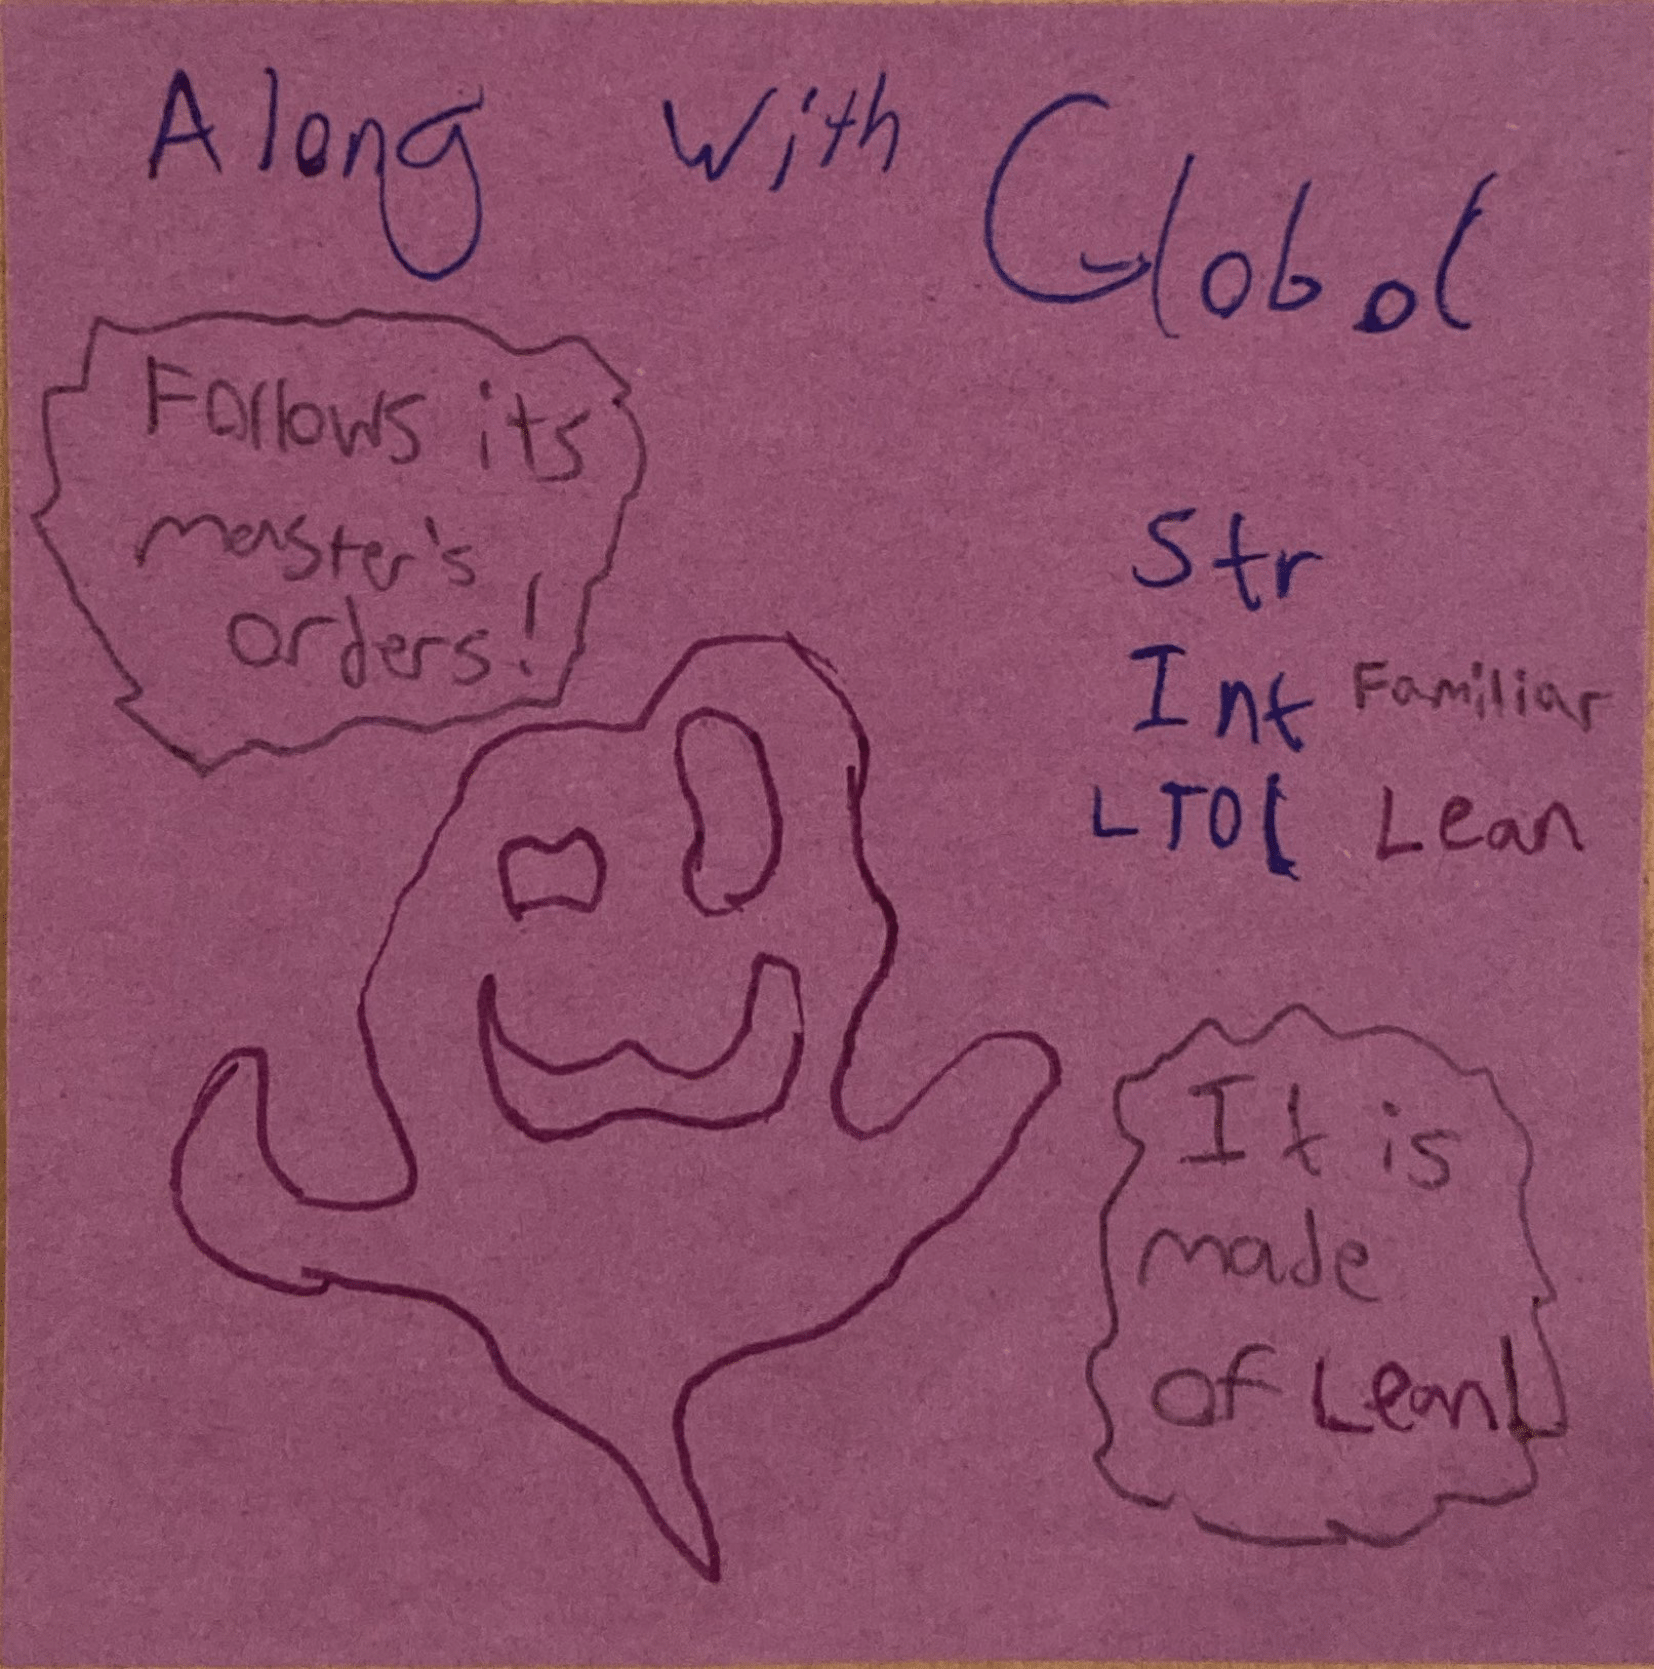 Along with Globol
Follows its
master's
orders!
Str
Int Familiar
LTOL Lean
It is
made
of Lean!